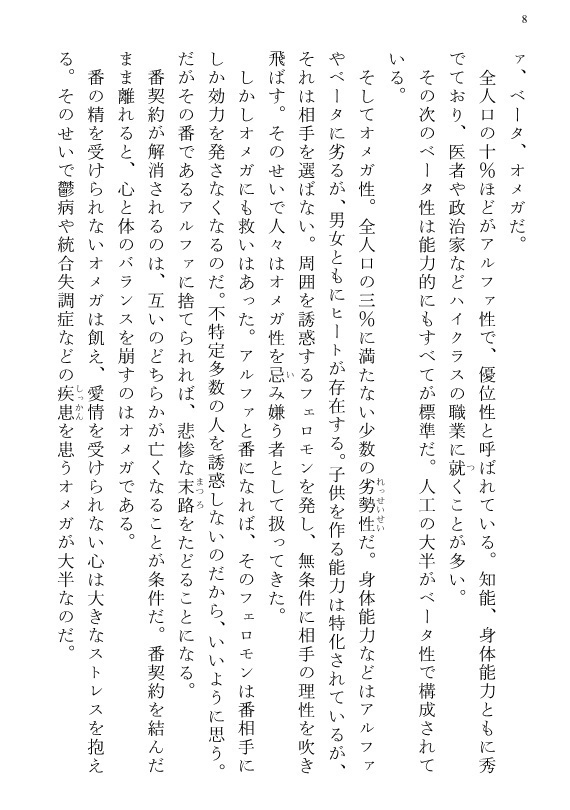 8
ァ、ベータ、オメガだ。
全人口の十％ほどがアルファ性で、優位性と呼ばれている。知能、身体能力ともに秀
でており、医者や政治家などハイクラスの職業に就くことが多い。
その次のベータ性は能力的にもすべてが標準だ。人工の大半がベータ性で構成されて
いる。
そしてオメガ性。全人口の三％に満たない少数の劣勢性だ。身体能力などはアルファ
やベータに劣るが、男女ともにヒートが存在する。子供を作る能力は特化されているが、
それは相手を選ばない。周囲を誘惑するフェロモンを発し、無条件に相手の理性を吹き
飛ばす。そのせいで人々はオメガ性を忌み嫌う者として扱ってきた。
しかしオメガにも救いはあった。アルファと番になれば、そのフェロモンは番相手に
しか効力を発さなくなるのだ。不特定多数の人を誘惑しないのだから、いいように思う。
だがその番であるアルファに捨てられれば、悲惨な末路をたどることになる。
番契約が解消されるのは、互いのどちらかが亡くなることが条件だ。番契約を結んだ
まま離れると、心と体のバランスを崩すのはオメガである。
番の精を受けられないオメガは飢え、愛情を受けられない心は大きなストレスを抱え
る。そのせいで鬱病や統合失調症などの疾患を患うオメガが大半なのだ。